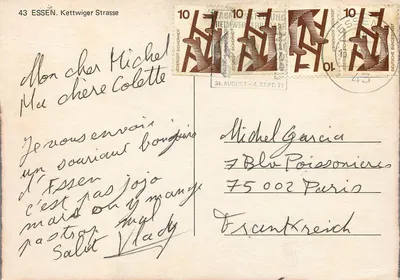 43 ESSEN. Kettwiger Strasse
10
10
10
10
31. AUGUST - 6. SEPT. 75
43
Mon cher Michel
Ma chère Colette
Je vous envoie
un souriant bonjour
d'Essen
c'est pas jojo
mais on y mange
pas trop mal
Salut Vlady
Michel Garcia
7 Blv Poissonieres
75 002 Paris
Frankreich